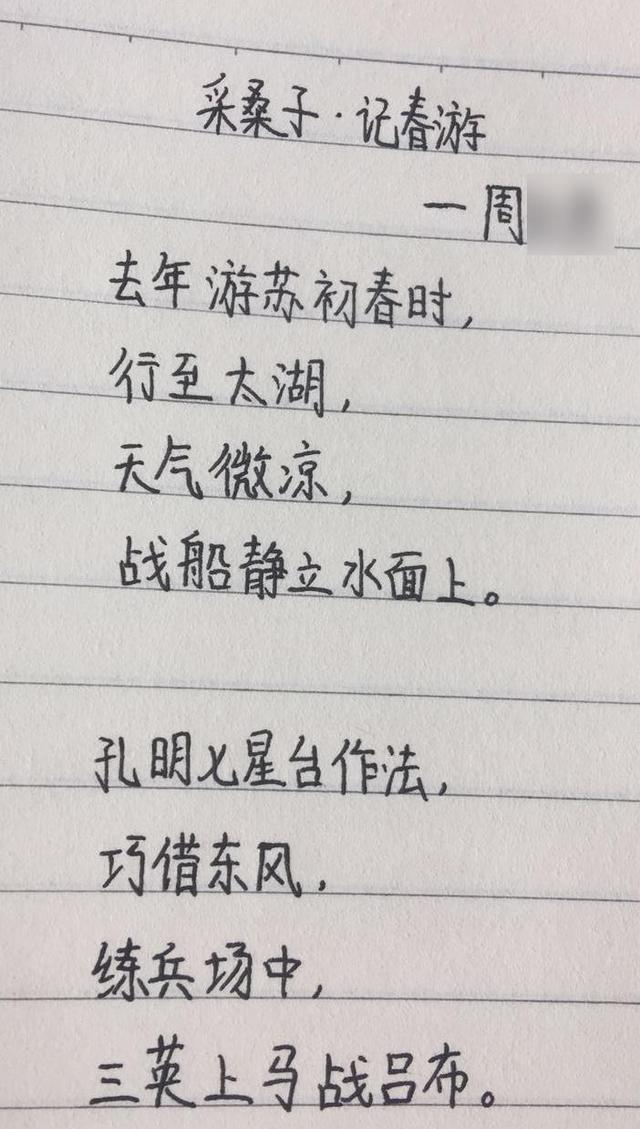 采桑子·记春游
一周
去年游苏初春时,
行至太湖,
天气微凉,
战船静立水面上。
孔明七星台作法,
巧借东风,
练兵场中,
三英上马战吕布。